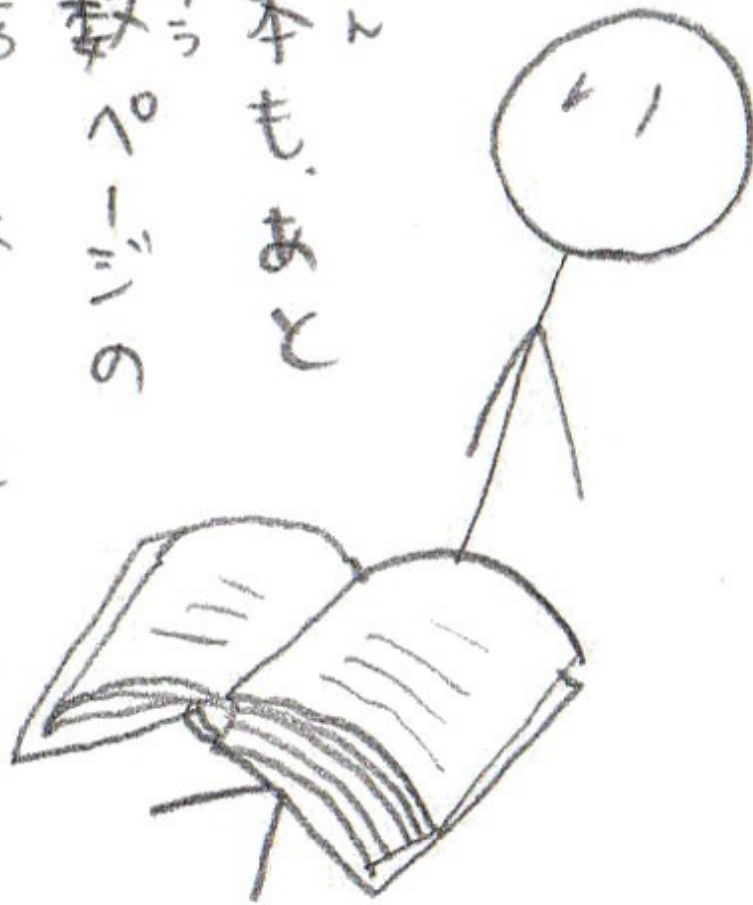 本も、あと
数ページの